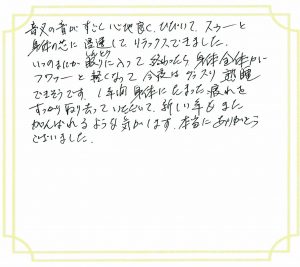 音叉の音が すごく心地良く、ひびいて、スゥーと
身体の芯に 浸透して リラックスできました。
いつのまにか 眠りに入って 終わったら 身体全体が
フワァーと 軽くなって 今夜は グッスリ 熟睡
できそうです。1年間 身体に たまった 疲れを
すっかり取り去って いただいて、新しい年も また
がんばれるような 気がします。本当に ありがとう
ございました。